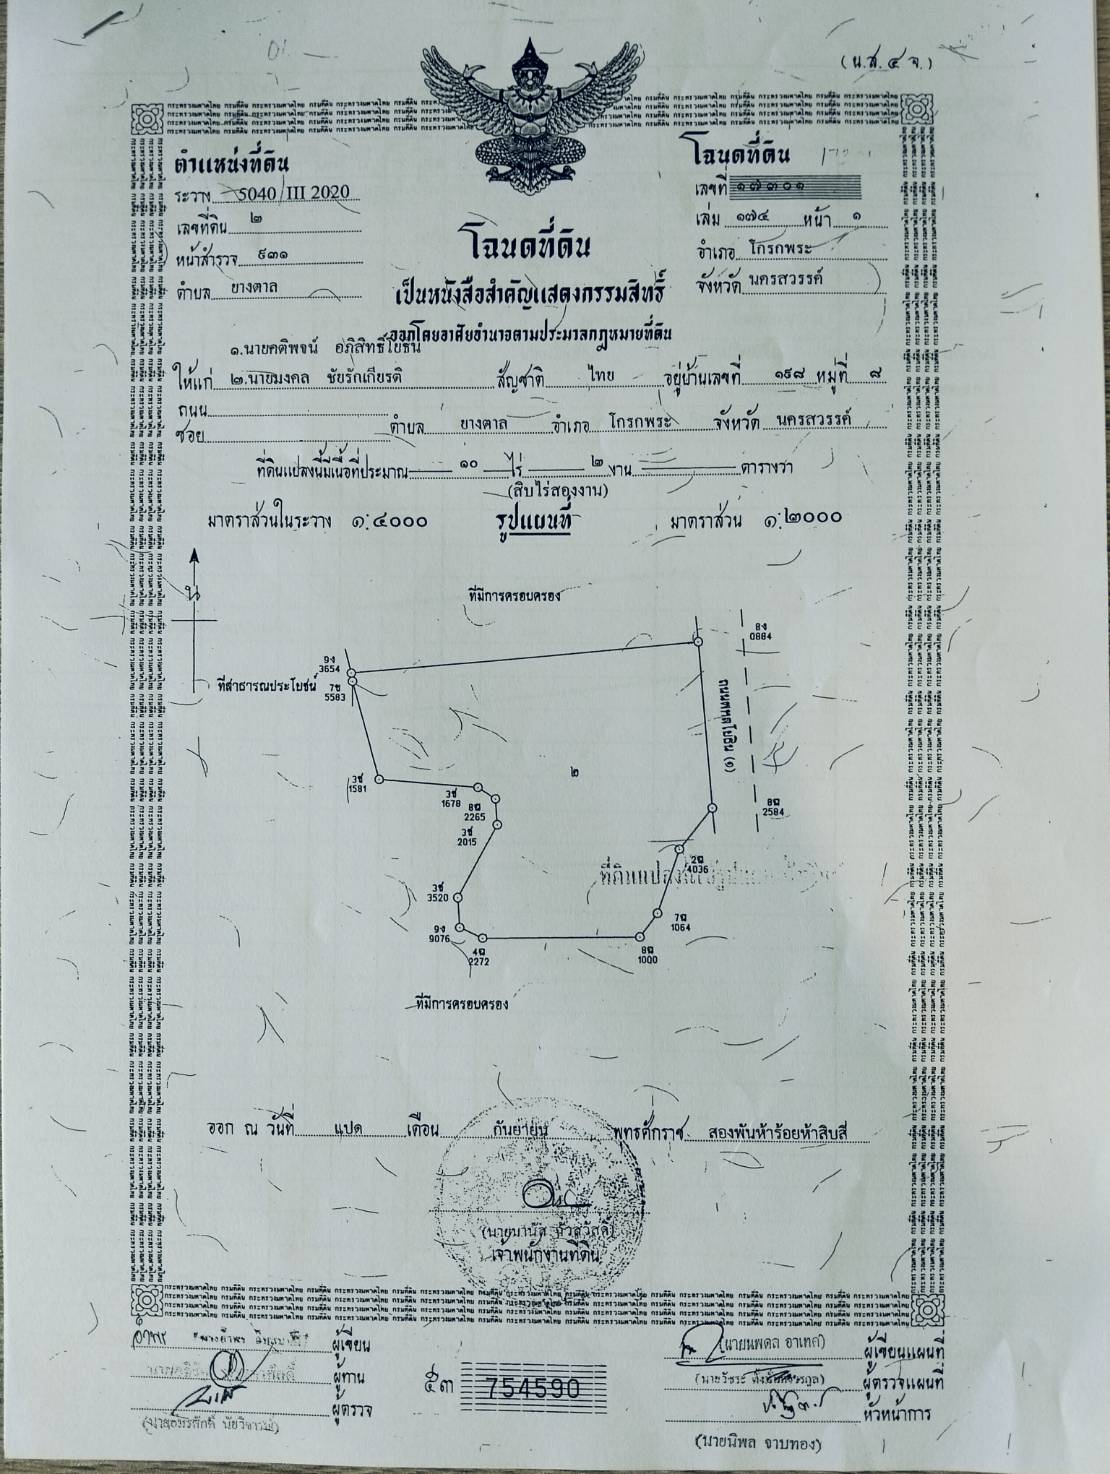 (น.ส.๔ จ.)
ตำแหน่งที่ดิน
ระวาง 5040 III 2020
เลขที่ดิน ๒
หน้าสำรวจ ๙๓๑
ตำบล ยางตาล
โฉนดที่ดิน
เลขที่ ๑๗๓๐๑
เล่ม ๑๗๔ หน้า ๑
อำเภอ โกรกพระ
จังหวัด นครสวรรค์
โฉนดที่ดิน
เป็นหนังสือสำคัญแสดงกรรมสิทธิ์
ออกโดยอาศัยอำนาจตามประมวลกฎหมายที่ดิน
๑.นายคติพจน์ อภิสิทธิ์โยธิน
ให้แก่ ๒.นายมงคล ชัยรักเกียรติ สัญชาติ ไทย อยู่บ้านเลขที่ ๑๙๘ หมู่ที่ ๘
ถนน
ซอย ตำบล ยางตาล อำเภอ โกรกพระ จังหวัด นครสวรรค์
ที่ดินแปลงนี้มีเนื้อที่ประมาณ ๑๐ ไร่ ๒ งาน ตารางวา
(สิบไร่สองงาน)
มาตราส่วนในระวาง ๑:๔๐๐๐ รูปแผนที่ มาตราส่วน ๑:๒๐๐๐
น
ที่มีการครอบครอง
8ง
0884
9ง
3654
ที่สาธารณประโยชน์
7ข
5583
ถนนพหลโยธิน (๑)
๒
3ช
1581
3ช
1678
8ฉ
2265
8ฉ
2584
3ช
2015
2ฉ
4036
ที่ดินแปลงนี้
3ช
3520
7ฉ
1064
9ง
9076
4ฉ
2272
8ฉ
1000
ที่มีการครอบครอง
ออก ณ วันที่ แปด เดือน กันยายน พุทธศักราช สองพันห้าร้อยห้าสิบสี่
เจ้าพนักงานที่ดิน
ผู้เขียน
ผู้ทาน
ผู้ตรวจ
๕๓ 754590
(นายนพดล อาเทศ) ผู้เขียนแผนที่
ผู้ตรวจแผนที่
หัวหน้าการ
(นายนิพล จาบทอง)